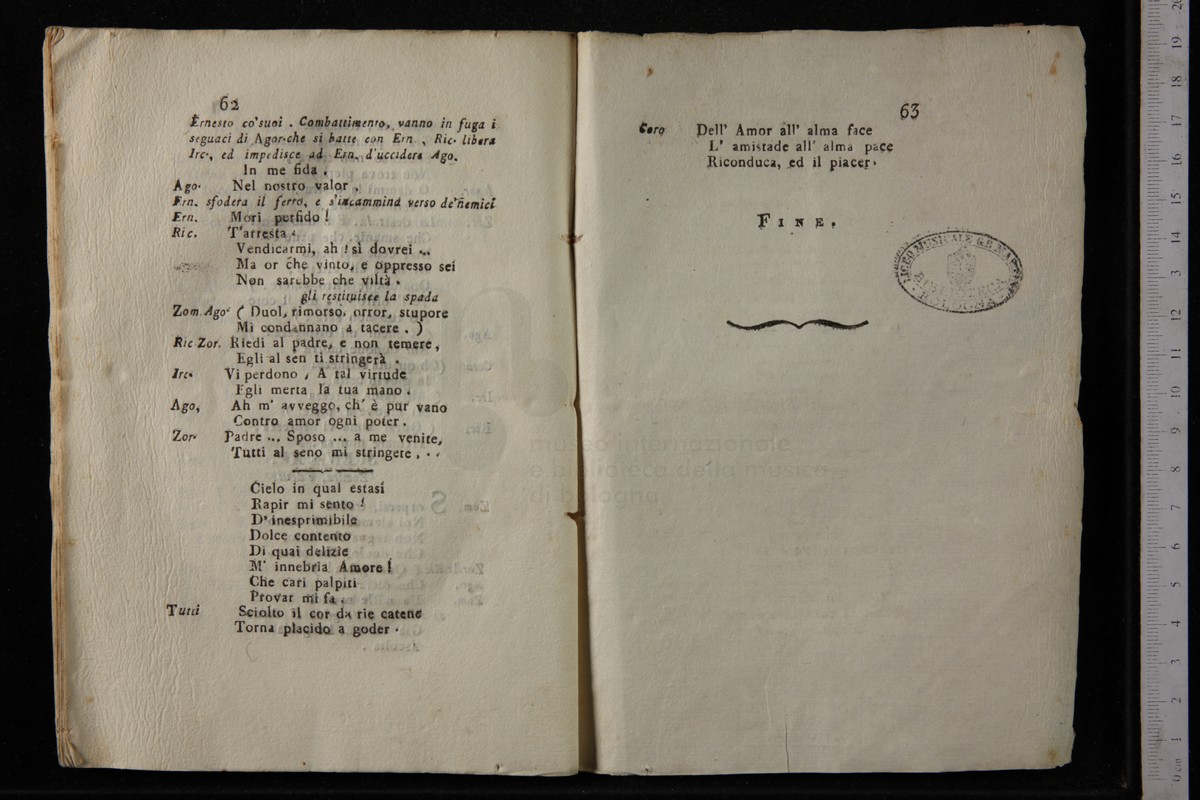 62
Ernesto co'suoi . Combattimento, vanno in fuga i
seguaci di Agor.che si batte con Ern , Ric. libera
Irc., ed impedisce ad Ern. d'uccidere Ago.
In me fida .
Ago. Nel nostro valor .
Ern. sfodera il ferro, e s'incammina verso de'nemici
Ern. Mori perfido !
Ric. T'arresta .
Vendicarmi, ah ! sì dovrei ...
Ma or che vinto, e oppresso sei
Non sarebbe che viltà .
gli restituisce la spada
Zom Ago. ( Duol, rimorso, orror, stupore
Mi condannano a tacere . )
Ric Zor. Riedi al padre, e non temere,
Egli al sen ti stringerà .
Irc. Vi perdono , A tal virtude
Egli merta la tua mano .
Ago, Ah m' avveggo, ch' è pur vano
Contro amor ogni poter .
Zor. Padre ... Sposo ... a me venite,
Tutti al seno mi stringete , . .
Cielo in qual estasi
Rapir mi sento !
D' inesprimibile
Dolce contento
Di quai delizie
M' innebria Amore !
Che cari palpiti
Provar mi fa .
Tutti Sciolto il cor da rie catene
Torna placido a goder .
63
Coro Dell' Amor all' alma face
L' amistade all' alma pace
Riconduca, ed il piacer.
FINE.
LICEO MUSICALE G.B. MARTINI
BIBLIOTECA
BOLOGNA
museo internazionale
e biblioteca della musica
di bologna